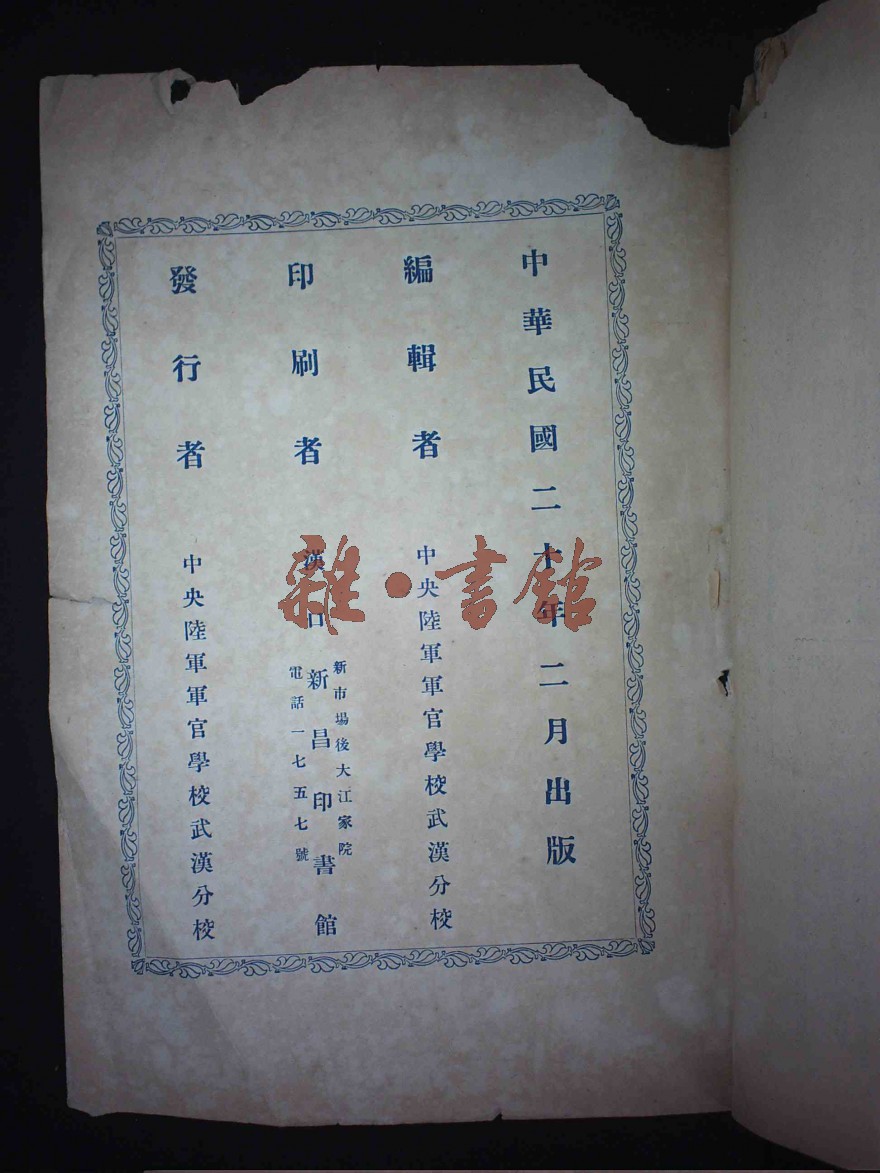 中華民國二十年二月出版
編輯者 中央陸軍軍官學校武漢分校
印刷者 漢口新昌印書館
新市場後大江家院
電話一七五七號
發行者 中央陸軍軍官學校武漢分校
雜·書館